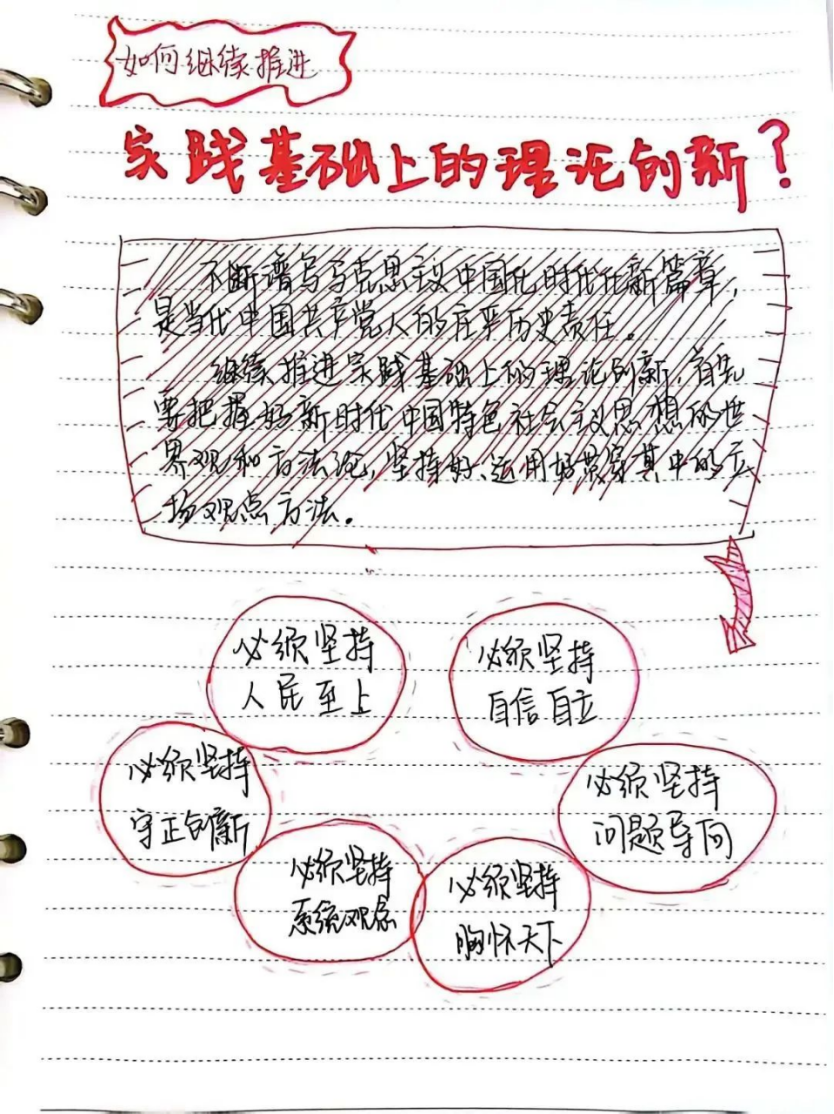 如何继续推进
实践基础上的理论创新?
不断谱写马克思主义中国化时代化新篇章,
是当代中国共产党人的庄严历史责任。
继续推进实践基础上的理论创新,首先
要把握好新时代中国特色社会主义思想的世
界观和方法论,坚持好、运用好贯穿其中的立
场观点方法。
必须坚持
人民至上
必须坚持
自信自立
必须坚持
守正创新
必须坚持
问题导向
必须坚持
系统观念
必须坚持
胸怀天下